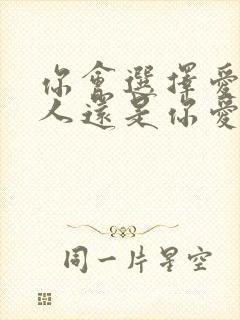 你會選擇愛
人還是你愛
同一片星空